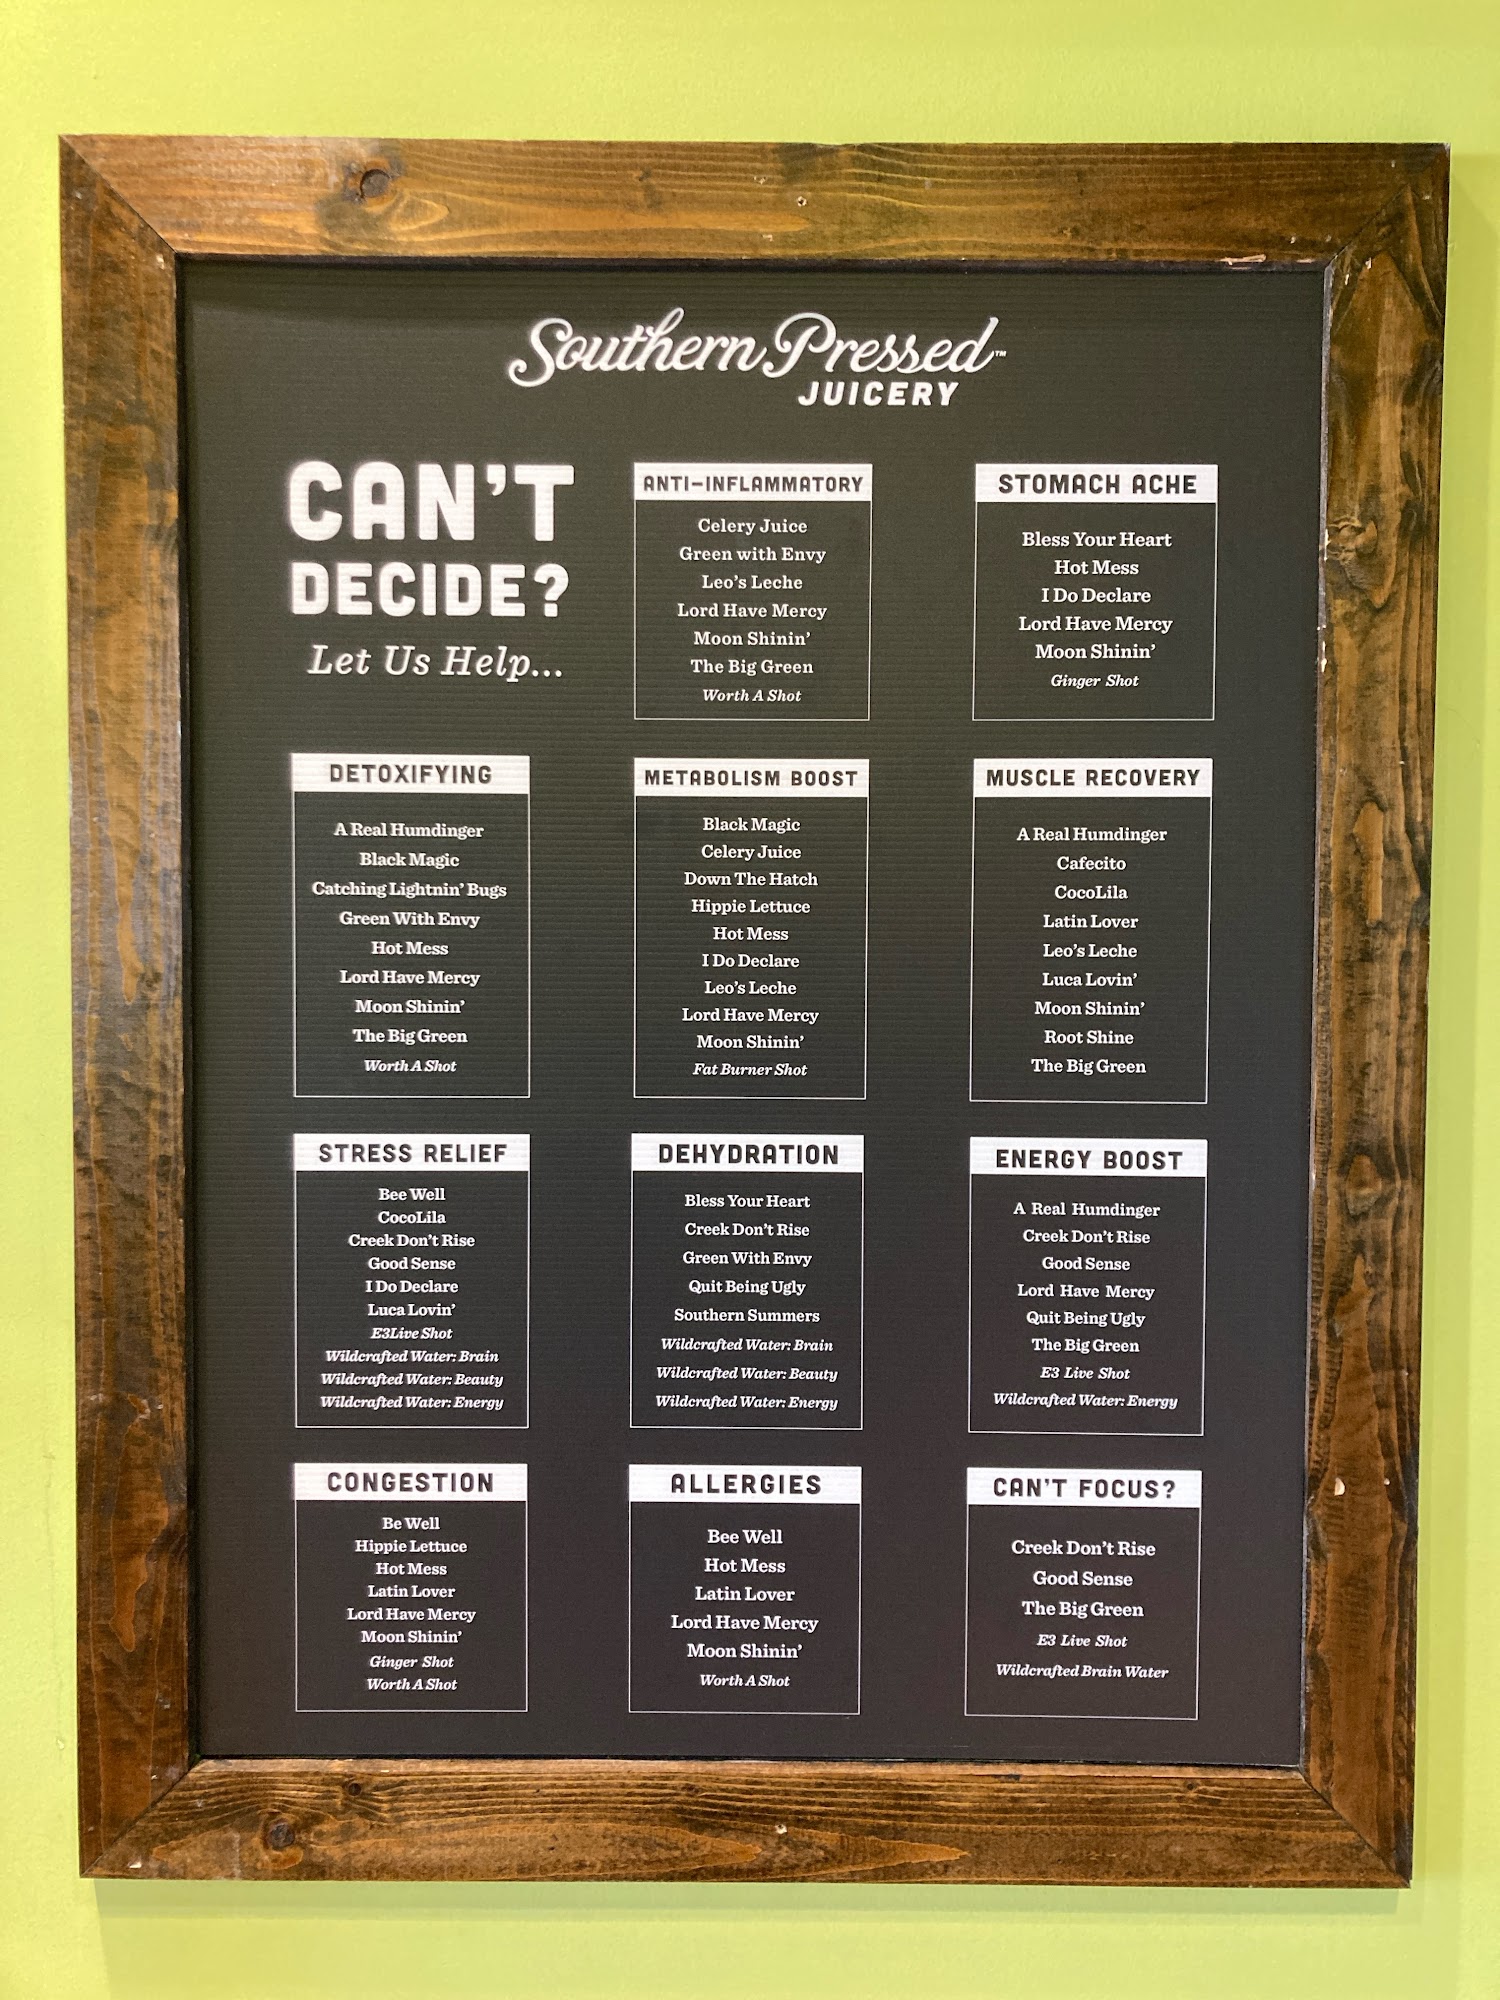 Southern Pressed™
JUICERY
CAN'T
DECIDE?
Let Us Help...
ANTI-INFLAMMATORY
Celery Juice
Green with Envy
Leo's Leche
Lord Have Mercy
Moon Shinin'
The Big Green
Worth A Shot
STOMACH ACHE
Bless Your Heart
Hot Mess
I Do Declare
Lord Have Mercy
Moon Shinin'
Ginger Shot
DETOXIFYING
A Real Humdinger
Black Magic
Catching Lightnin' Bugs
Green With Envy
Hot Mess
Lord Have Mercy
Moon Shinin'
The Big Green
Worth A Shot
METABOLISM BOOST
Black Magic
Celery Juice
Down The Hatch
Hippie Lettuce
Hot Mess
I Do Declare
Leo's Leche
Lord Have Mercy
Moon Shinin'
Fat Burner Shot
MUSCLE RECOVERY
A Real Humdinger
Cafecito
CocoLila
Latin Lover
Leo's Leche
Luca Lovin'
Moon Shinin'
Root Shine
The Big Green
STRESS RELIEF
Bee Well
CocoLila
Creek Don't Rise
Good Sense
I Do Declare
Luca Lovin'
E3Live Shot
Wildcrafted Water: Brain
Wildcrafted Water: Beauty
Wildcrafted Water: Energy
DEHYDRATION
Bless Your Heart
Creek Don't Rise
Green With Envy
Quit Being Ugly
Southern Summers
Wildcrafted Water: Brain
Wildcrafted Water: Beauty
Wildcrafted Water: Energy
ENERGY BOOST
A Real Humdinger
Creek Don't Rise
Good Sense
Lord Have Mercy
Quit Being Ugly
The Big Green
E3 Live Shot
Wildcrafted Water: Energy
CONGESTION
Be Well
Hippie Lettuce
Hot Mess
Latin Lover
Lord Have Mercy
Moon Shinin'
Ginger Shot
Worth A Shot
ALLERGIES
Bee Well
Hot Mess
Latin Lover
Lord Have Mercy
Moon Shinin'
Worth A Shot
CAN'T FOCUS?
Creek Don't Rise
Good Sense
The Big Green
E3 Live Shot
Wildcrafted Brain Water